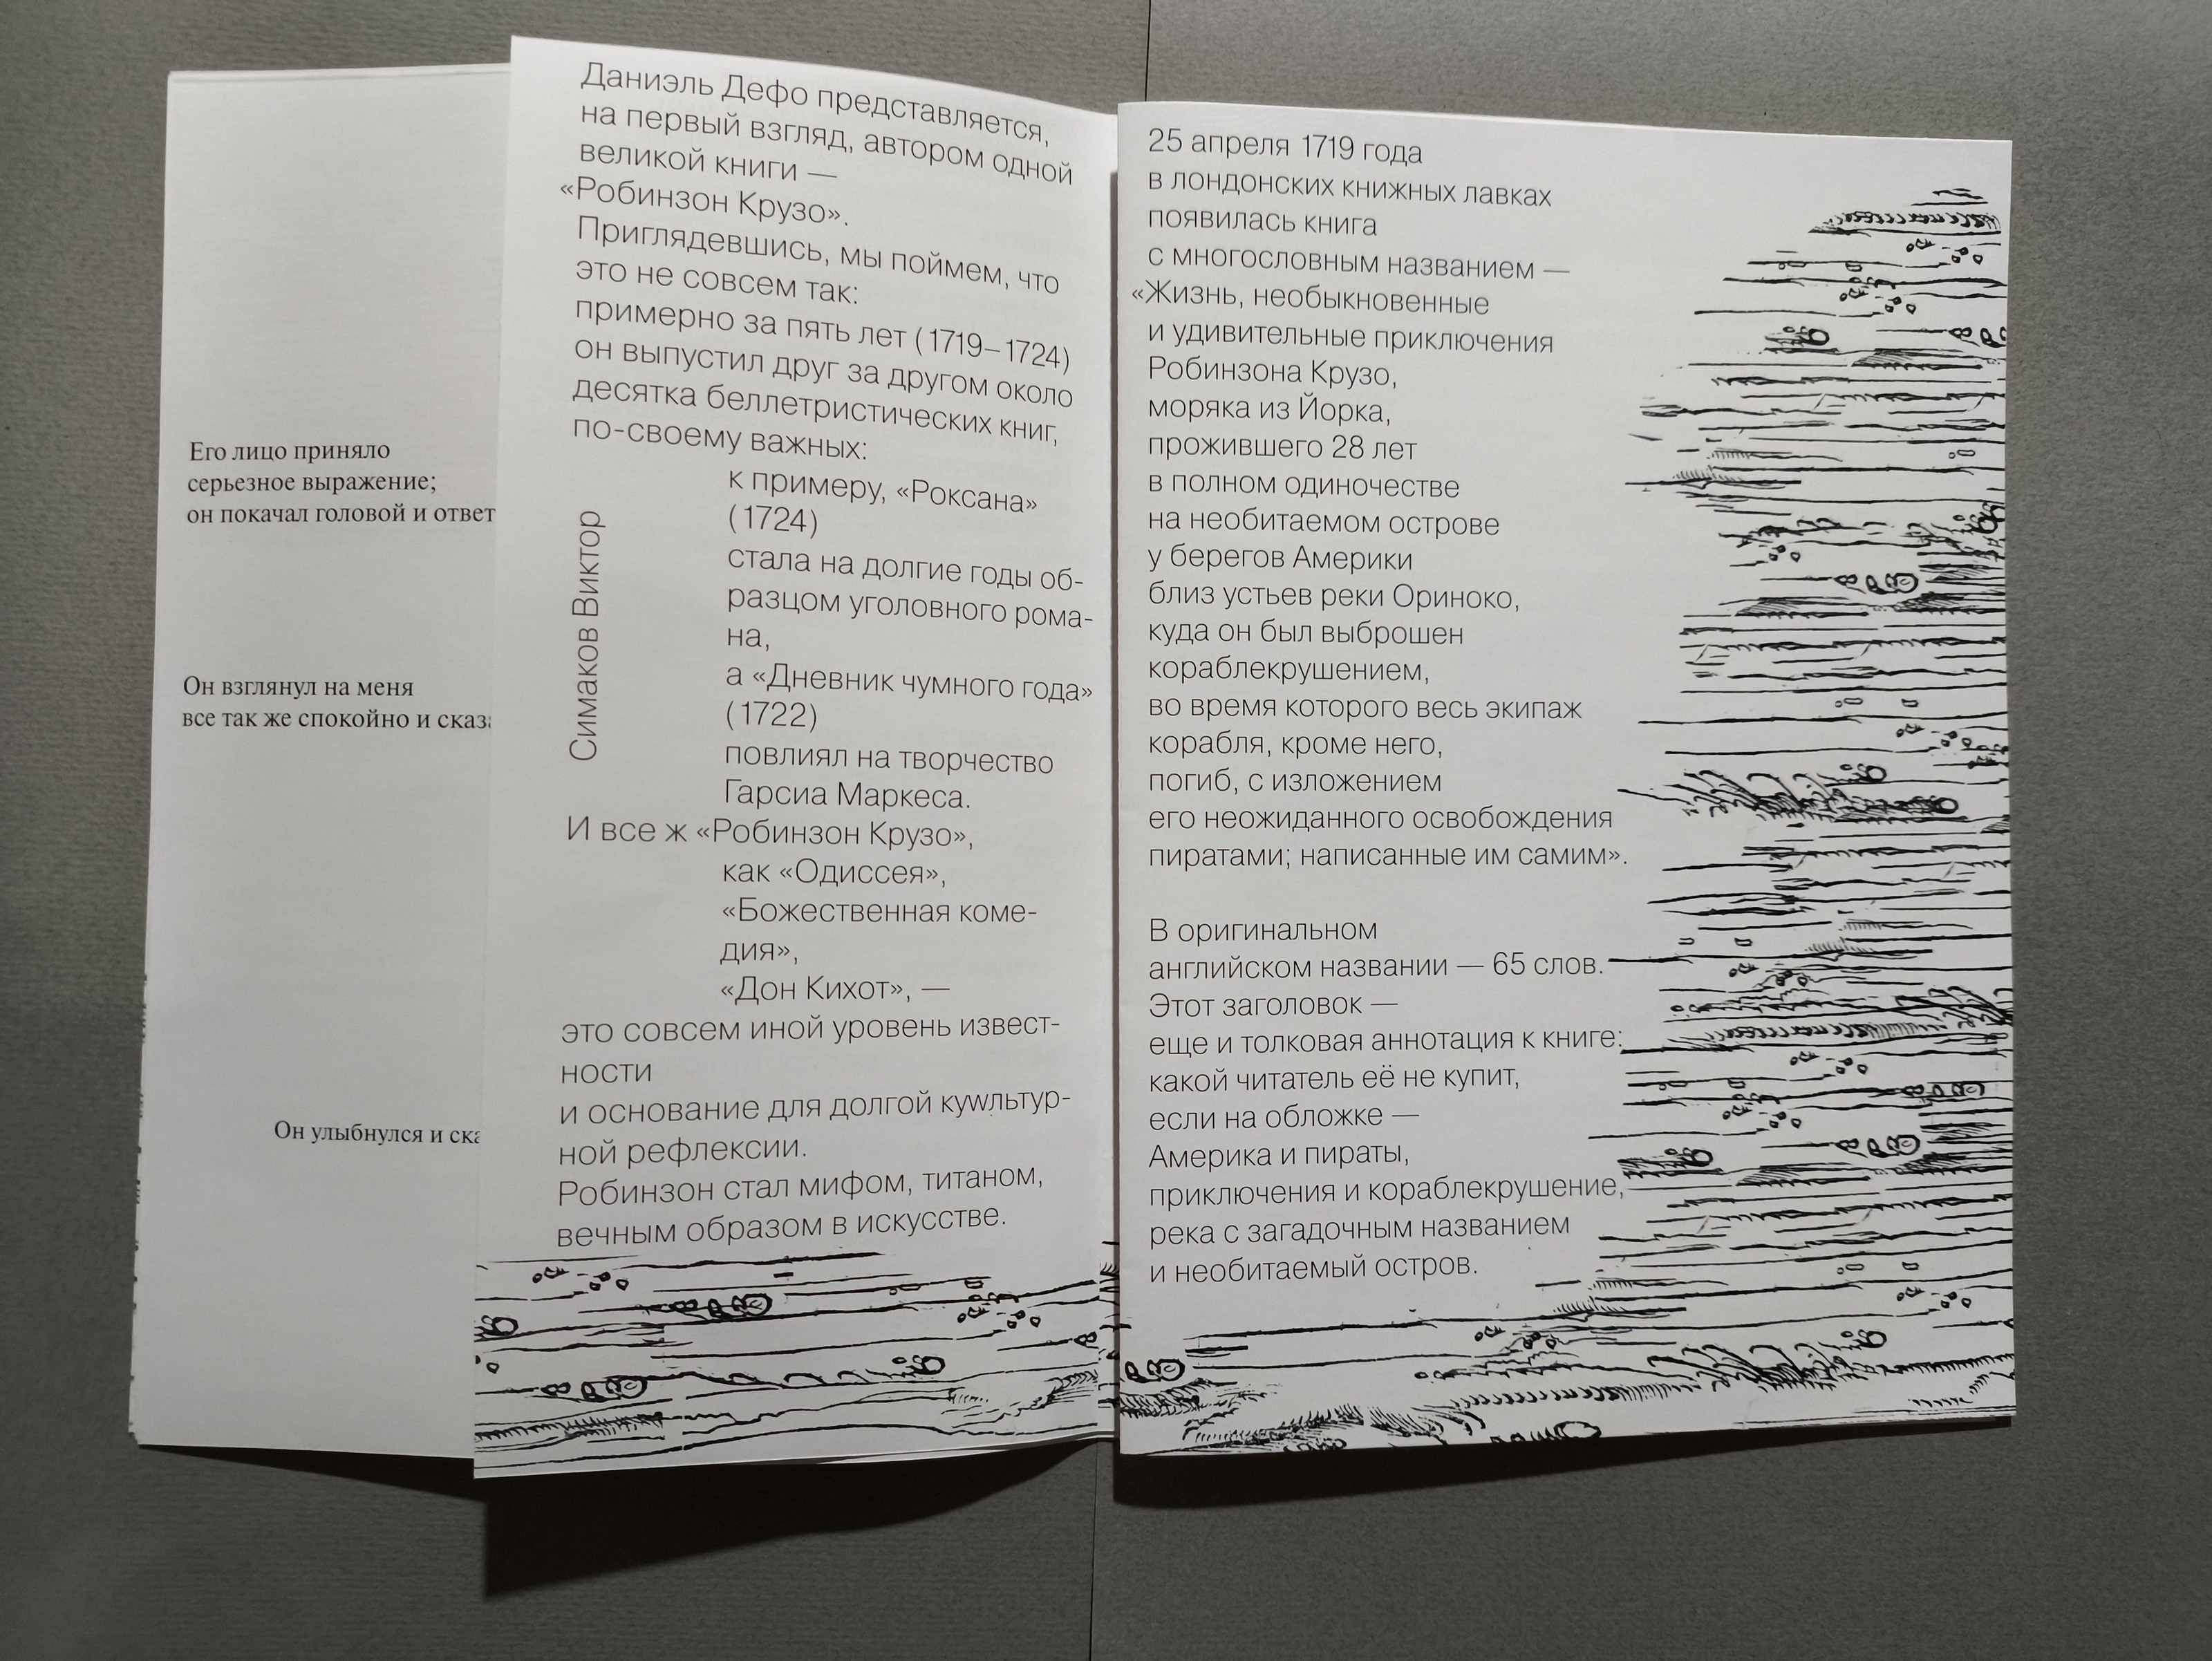 Его лицо приняло
серьезное выражение;
он покачал головой и ответ
Он взглянул на меня
все так же спокойно и сказ
Он улыбнулся и ска
Даниэль Дефо представляется,
на первый взгляд, автором одной
великой книги —
«Робинзон Крузо».
Приглядевшись, мы поймем, что
это не совсем так:
примерно за пять лет (1719–1724)
он выпустил друг за другом около
десятка беллетристических книг,
по-своему важных:
к примеру, «Роксана»
(1724)
стала на долгие годы об-
разцом уголовного рома-
на,
а «Дневник чумного года»
(1722)
повлиял на творчество
Гарсиа Маркеса.
Симаков Виктор
И все ж «Робинзон Крузо»,
как «Одиссея»,
«Божественная коме-
дия»,
«Дон Кихот», —
это совсем иной уровень извест-
ности
и основание для долгой куwльтур-
ной рефлексии.
Робинзон стал мифом, титаном,
вечным образом в искусстве.
25 апреля 1719 года
в лондонских книжных лавках
появилась книга
с многословным названием —
«Жизнь, необыкновенные
и удивительные приключения
Робинзона Крузо,
моряка из Йорка,
прожившего 28 лет
в полном одиночестве
на необитаемом острове
у берегов Америки
близ устьев реки Ориноко,
куда он был выброшен
кораблекрушением,
во время которого весь экипаж
корабля, кроме него,
погиб, с изложением
его неожиданного освобождения
пиратами; написанные им самим».
В оригинальном
английском названии — 65 слов.
Этот заголовок —
еще и толковая аннотация к книге:
какой читатель её не купит,
если на обложке —
Америка и пираты,
приключения и кораблекрушение,
река с загадочным названием
и необитаемый остров.